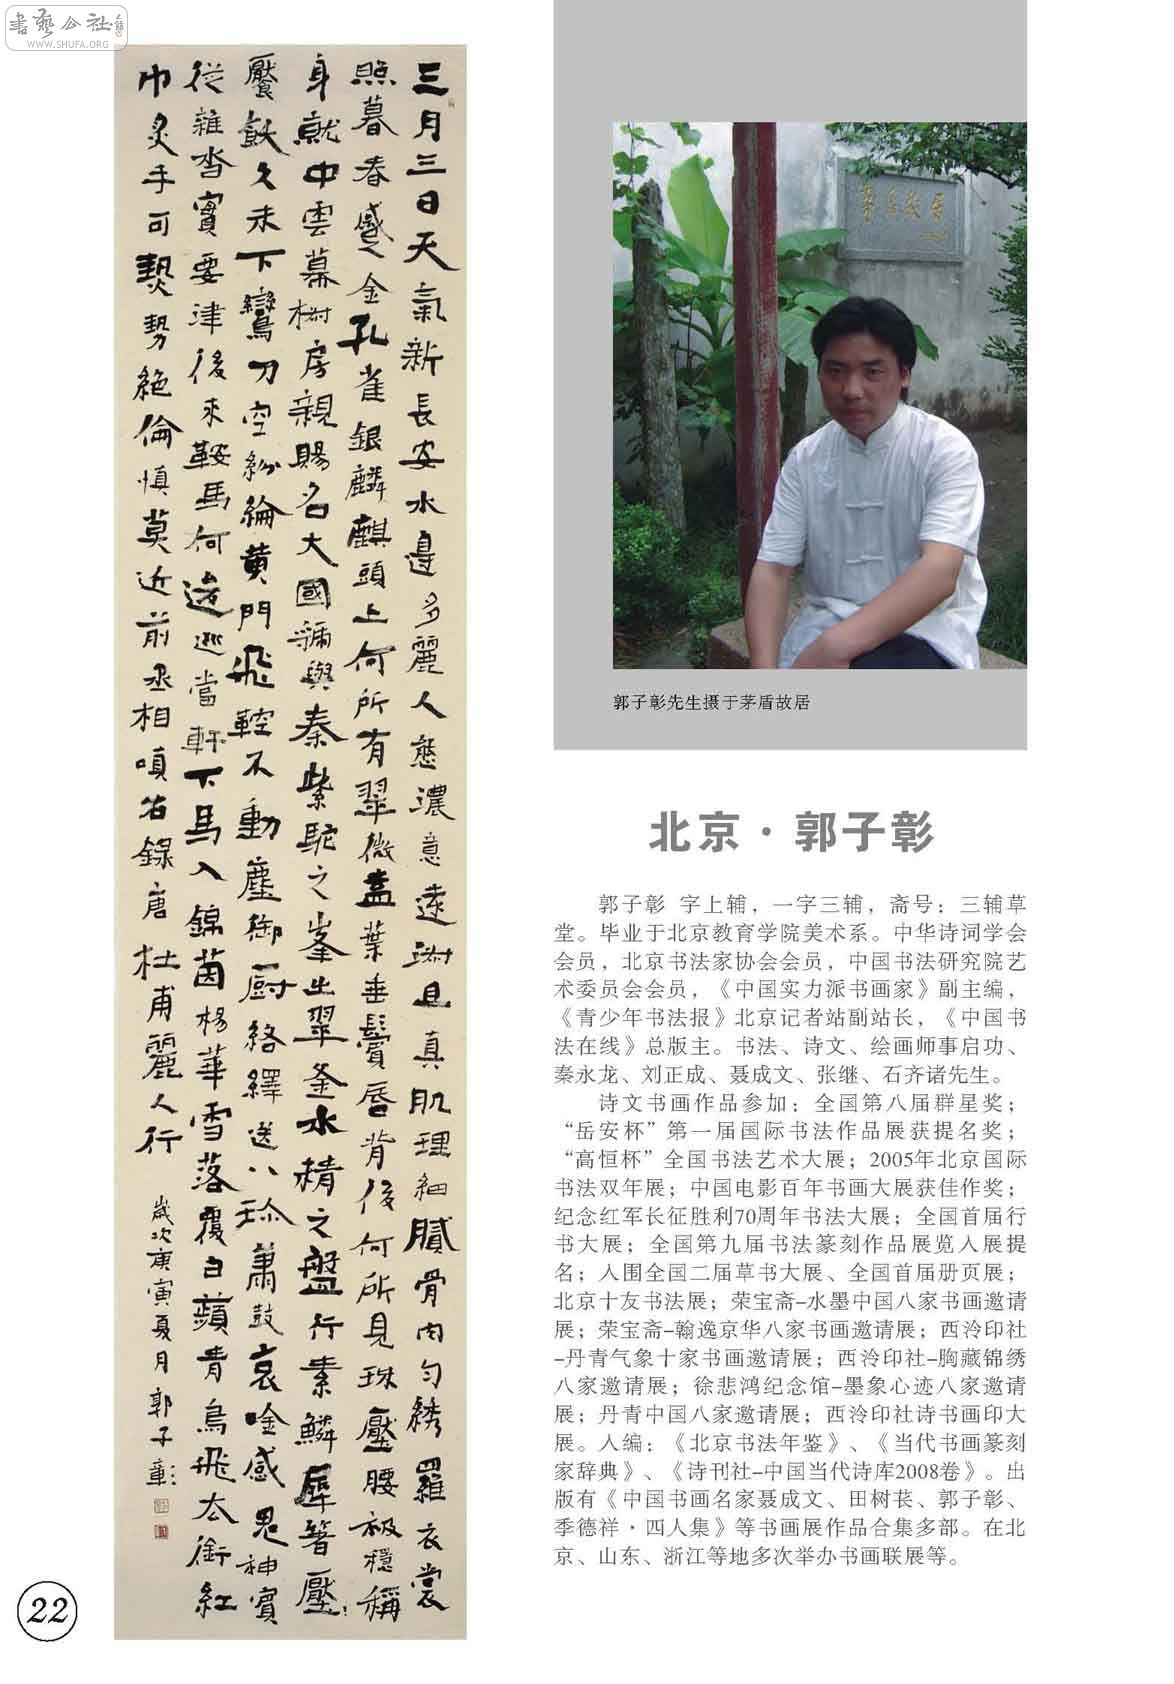 书艺公社
WWW.SHUFA.ORG
三月三日天氣新長安水邊多麗人態濃意遠淑且真肌理細膩骨肉勻綉羅衣裳
照暮春蹙金孔雀銀麟麒頭上何所有翠微盍葉垂鬢唇背後何所見珠壓腰衱穩稱
身就中雲幕椒房親賜名大國虢與秦紫駝之峯出翠釜水精之盤行素鱗犀箸壓
饜飫久未下鸞刀空紛綸黃門飛鞚不動塵御厨絡繹送八珍蕭鼓哀唫感鬼神賓
從雜沓實要津後來鞍馬何逡巡當軒下馬入錦茵楊華雪落覆白蘋青鳥飛去銜紅
巾炙手可熱勢絕倫慎莫近前丞相嗔右錄唐杜甫麗人行
歲次庚寅夏月郭子彰
茅盾故居
郭子彰先生摄于茅盾故居
北京·郭子彰
郭子彰 字上辅，一字三辅，斋号：三辅草
堂。毕业于北京教育学院美术系。中华诗词学会
会员，北京书法家协会会员，中国书法研究院艺
术委员会会员，《中国实力派书画家》副主编，
《青少年书法报》北京记者站副站长，《中国书
法在线》总版主。书法、诗文、绘画师事启功、
秦永龙、刘正成、聂成文、张继、石齐诸先生。
诗文书画作品参加：全国第八届群星奖；
“岳安杯”第一届国际书法作品展获提名奖；
“高恒杯”全国书法艺术大展；2005年北京国际
书法双年展；中国电影百年书画大展获佳作奖；
纪念红军长征胜利70周年书法大展；全国首届行
书大展；全国第九届书法篆刻作品展览入展提
名；入围全国二届草书大展、全国首届册页展；
北京十友书法展；荣宝斋-水墨中国八家书画邀请
展；荣宝斋-翰逸京华八家书画邀请展；西泠印社
-丹青气象十家书画邀请展；西泠印社-胸藏锦绣
八家邀请展；徐悲鸿纪念馆-墨象心迹八家邀请
展；丹青中国八家邀请展；西泠印社诗书画印大
展。入编：《北京书法年鉴》、《当代书画篆刻
家辞典》、《诗刊社-中国当代诗库2008卷》。出
版有《中国书画名家聂成文、田树苌、郭子彰、
季德祥·四人集》等书画展作品合集多部。在北
京、山东、浙江等地多次举办书画联展等。
22